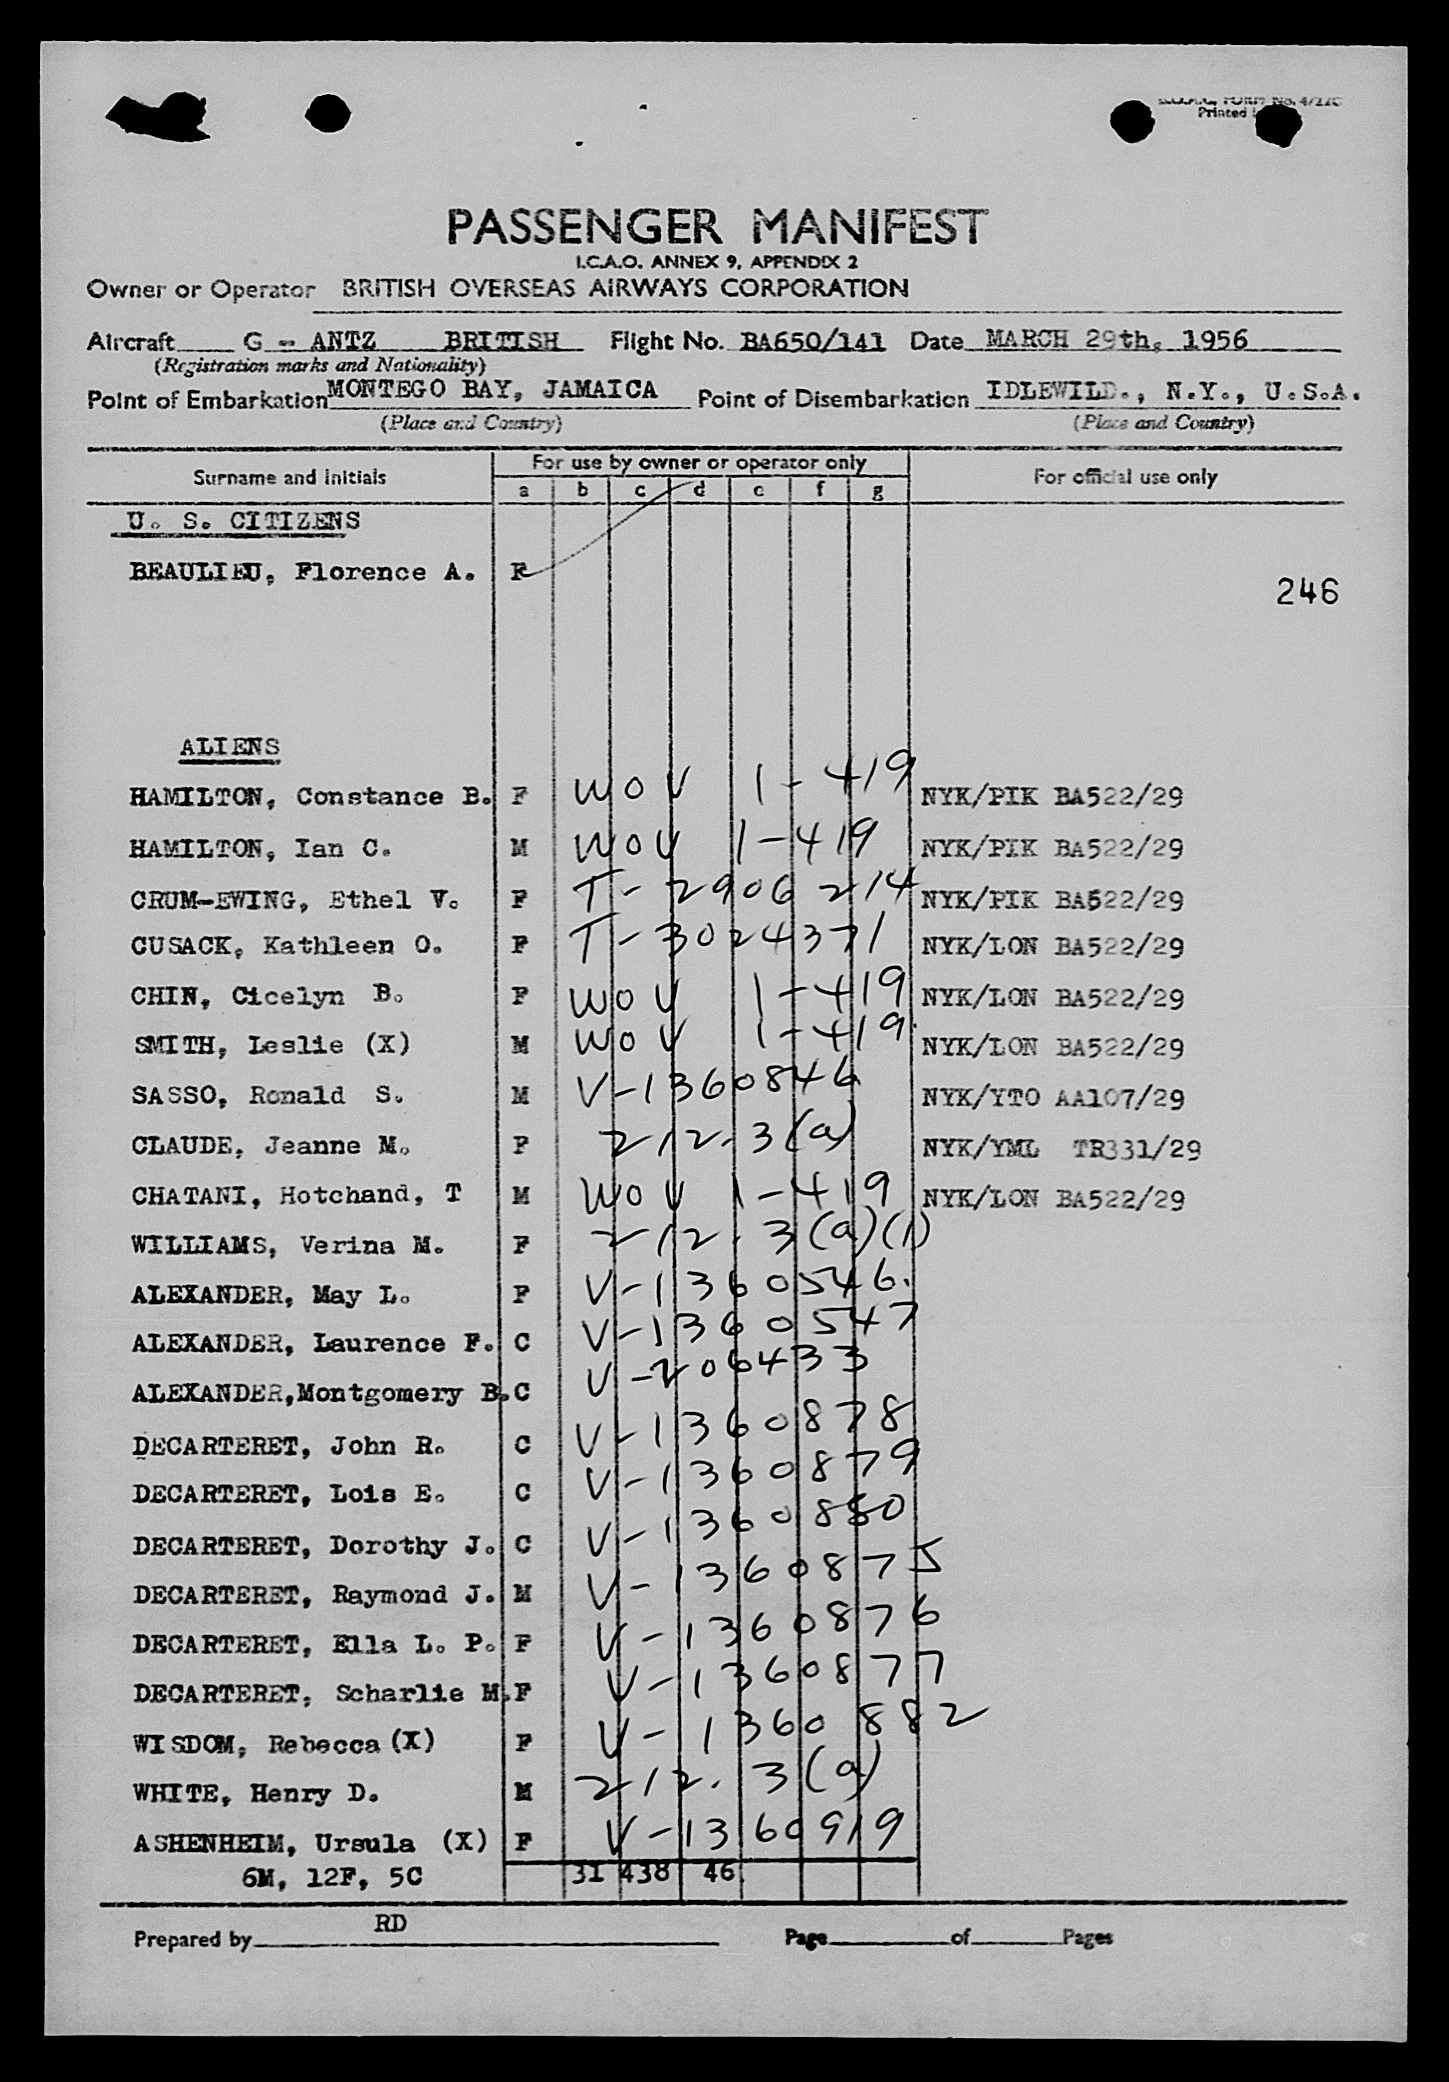 Printed
PASSENGER MANIFEST
I.C.A.O. ANNEX 9, APPENDIX 2
Owner or Operator BRITISH OVERSEAS AIRWAYS CORPORATION
Aircraft G - ANTZ BRITISH Flight No. BA650/141 Date MARCH 29th, 1956
(Registration marks and Nationality)
Point of Embarkation MONTEGO BAY, JAMAICA Point of Disembarkation IDLEWILD., N.Y., U.S.A.
(Place and Country) (Place and Country)
Surname and initials For use by owner or operator only For official use only
a b c d e f g
U. S. CITIZENS
BEAULIEU, Florence A. F
246
ALIENS
HAMILTON, Constance B. F WOV 1-419 NYK/PIK BA522/29
HAMILTON, Ian C. M WOV 1-419 NYK/PIK BA522/29
CRUM-EWING, Ethel V. F T-2906214 NYK/PIK BA522/29
CUSACK, Kathleen O. F T-3024371 NYK/LON BA522/29
CHIN, Cicelyn B. F WOV 1-419 NYK/LON BA522/29
SMITH, Leslie (X) M WOV 1-419 NYK/LON BA522/29
SASSO, Ronald S. M V-1360846 NYK/YTO AA107/29
CLAUDE, Jeanne M. F 212.3(a) NYK/YML TR331/29
CHATANI, Hotchand, T M WOV 1-419 NYK/LON BA522/29
WILLIAMS, Verina M. F 212.3(a)(1)
ALEXANDER, May L. F V-1360546.
ALEXANDER, Laurence F. C V-1360547
ALEXANDER,Montgomery B. C V-206433
DECARTERET, John R. C V-1360878
DECARTERET, Lois E. C V-1360879
DECARTERET, Dorothy J. C V-1360880
DECARTERET, Raymond J. M V-1360875
DECARTERET, Ella L. P. F V-1360876
DECARTERET, Scharlie M. F V-1360877
WISDOM, Rebecca (X) F V-1360882
WHITE, Henry D. M 212.3(a)
ASHENHEIM, Ursula (X) F V-1360919
6M, 12F, 5C 31 438 46
Prepared by RD Page of Pages